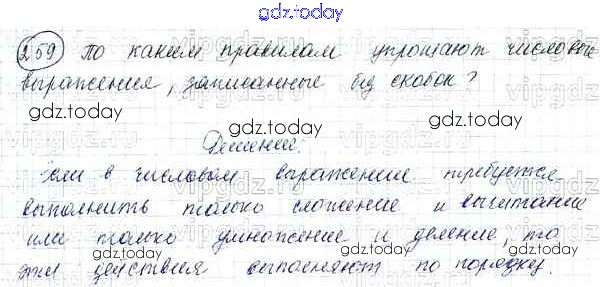 gdz.today
259 По каким правилам упрощают числовые
выражения, записанные без скобок?
gdz.today gdz.today
Решение:
Если в числовом выражение требуется
выполнить только сложение и вычитание
или только умножение и деление, то
эти действия выполняют по порядку.
gdz.today gdz.today